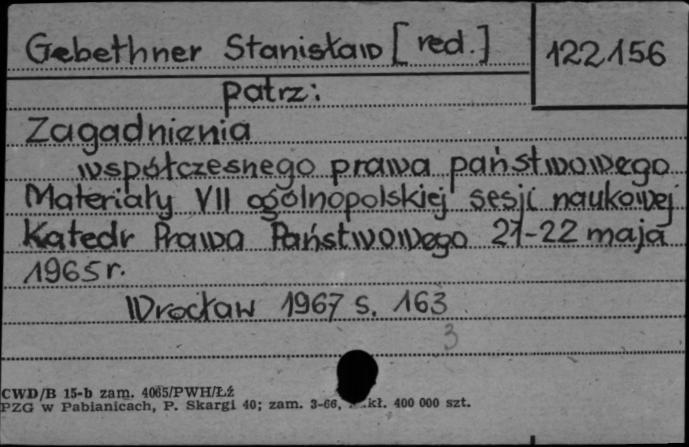 Gebethner Stanisław [red.] 122156
patrz:
Zagadnienia
współczesnego prawa państwowego
Materiały VII ogólnopolskiej sesji naukowej
Katedr Prawa Państwowego 21-22 maja
1965 r.
Wrocław 1967 s. 163
3
CWD/B 15-b zam. 4065/PWH/Łź
PZG w Pabianicach, P. Skargi 40; zam. 3-66, kł. 400 000 szt.